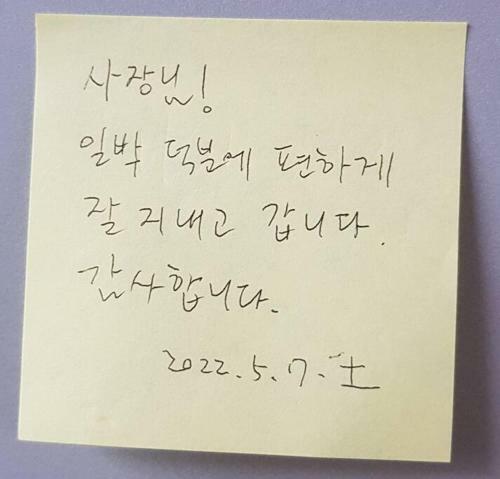 사장님!
일박 덕분에 편하게
잘 지내고 갑니다.
감사합니다.
2022.5.7.土